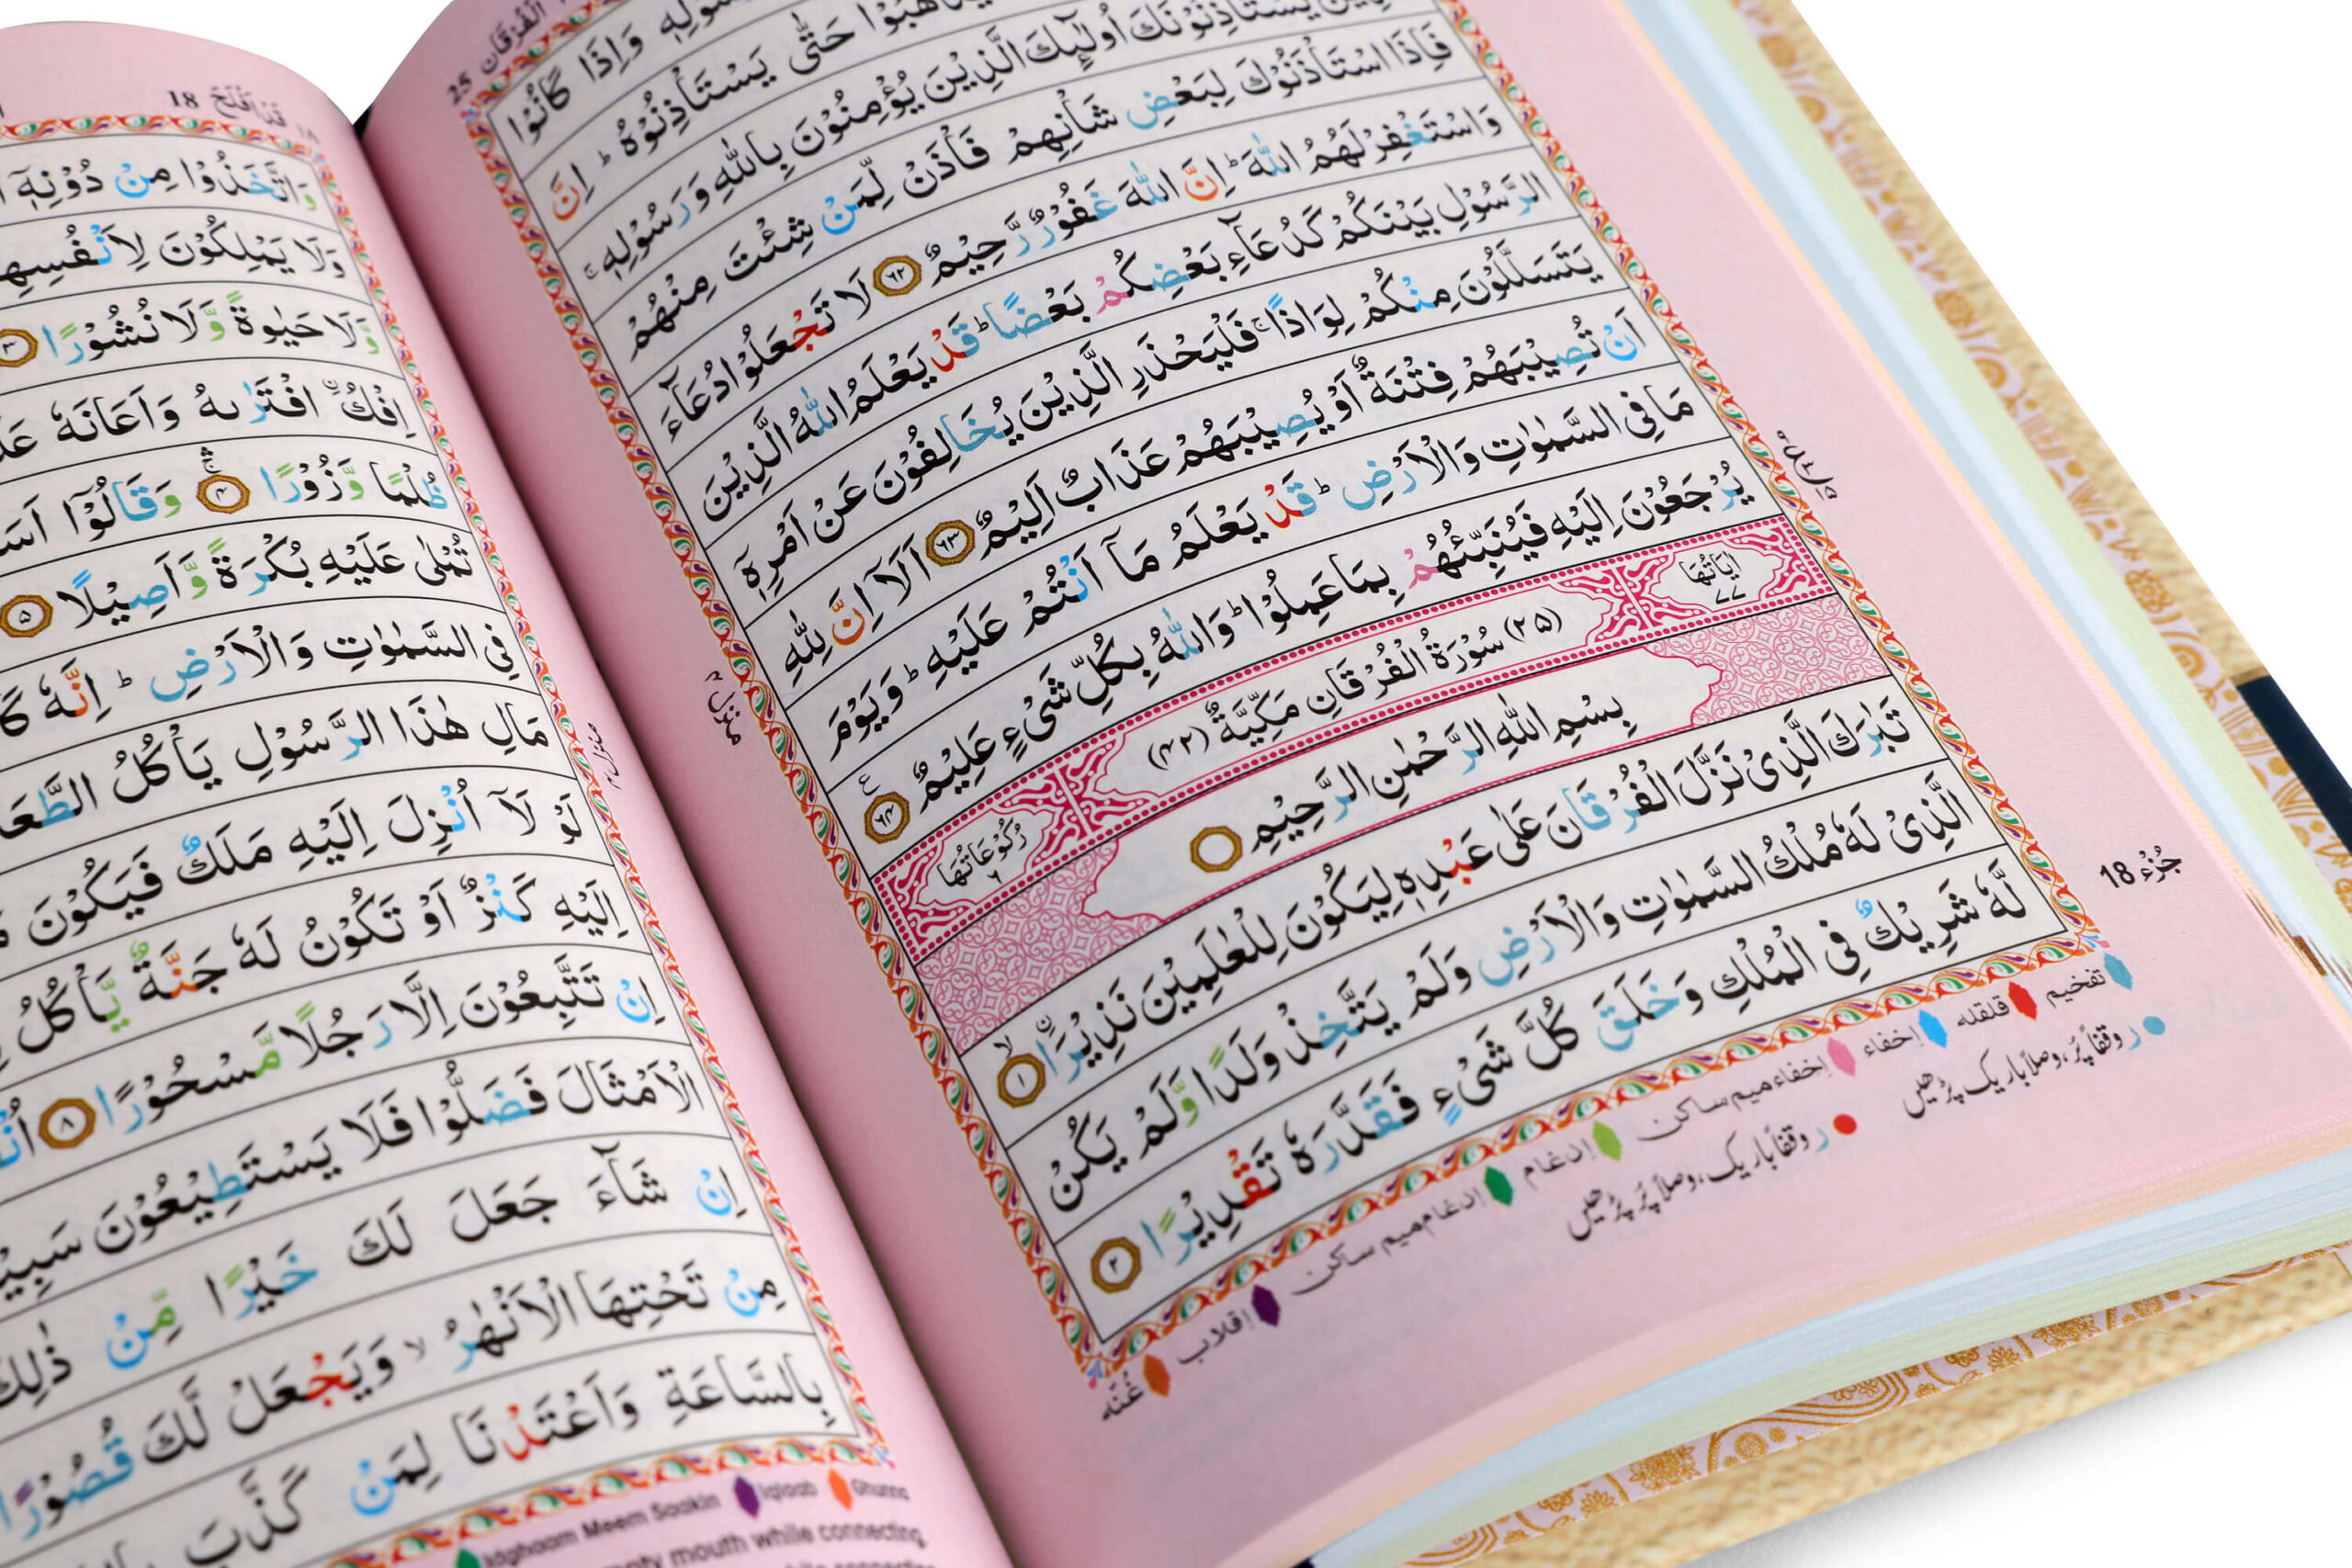 الْفُرْقَان 25
وَاِذَا كَانُوْا
حَتّٰى يَسْتَاْذِنُوْهُ ؕ اِنَّ
الَّذِيْنَ يَسْتَاْذِنُوْنَكَ اُولٰٓئِكَ الَّذِيْنَ يُؤْمِنُوْنَ بِاللّٰهِ وَرَسُوْلِهٖ ۚ
فَاِذَا اسْتَاْذَنُوْكَ لِبَعْضِ شَاْنِهِمْ فَاْذَنْ لِّمَنْ شِئْتَ مِنْهُمْ
وَاسْتَغْفِرْ لَهُمُ اللّٰهَ ؕ اِنَّ اللّٰهَ غَفُوْرٌ رَّحِيْمٌ ﴿۶۲﴾ لَا تَجْعَلُوْا دُعَآءَ
الرَّسُوْلِ بَيْنَكُمْ كَدُعَآءِ بَعْضِكُمْ بَعْضًا ؕ قَدْ يَعْلَمُ اللّٰهُ الَّذِيْنَ
يَتَسَلَّلُوْنَ مِنْكُمْ لِوَاذًا ۚ فَلْيَحْذَرِ الَّذِيْنَ يُخَالِفُوْنَ عَنْ اَمْرِهٖٓ
اَنْ تُصِيْبَهُمْ فِتْنَةٌ اَوْ يُصِيْبَهُمْ عَذَابٌ اَلِيْمٌ ﴿۶۳﴾ اَلَآ اِنَّ لِلّٰهِ
مَا فِى السَّمٰوٰتِ وَالْاَرْضِ ؕ قَدْ يَعْلَمُ مَآ اَنْتُمْ عَلَيْهِ ؕ وَيَوْمَ
يُرْجَعُوْنَ اِلَيْهِ فَيُنَبِّئُهُمْ بِمَا عَمِلُوْا ؕ وَاللّٰهُ بِكُلِّ شَىْءٍ عَلِيْمٌ ﴿۶۴﴾ ع
اٰيَاتُهَا ۷۷ (۲۵) سُوْرَةُ الْفُرْقَانِ مَكِّيَّةٌ (۴۲) رُكُوْعَاتُهَا ۶
بِسْمِ اللّٰهِ الرَّحْمٰنِ الرَّحِيْمِ
تَبٰرَكَ الَّذِىْ نَزَّلَ الْفُرْقَانَ عَلٰى عَبْدِهٖ لِيَكُوْنَ لِلْعٰلَمِيْنَ نَذِيْرَا ۙ ﴿۱﴾
الَّذِىْ لَهٗ مُلْكُ السَّمٰوٰتِ وَالْاَرْضِ وَلَمْ يَتَّخِذْ وَلَدًا وَّلَمْ يَكُنْ
لَّهٗ شَرِيْكٌ فِى الْمُلْكِ وَخَلَقَ كُلَّ شَىْءٍ فَقَدَّرَهٗ تَقْدِيْرًا ﴿۲﴾
منزل ۴
جُزْء 18
تفخیم قلقله إخفاء إخفاء میم ساکن إدغام إدغام میم ساکن إقلاب غُنّه
ر وقفاً پُر، وصلاً باریک پڑھیں
ر وقفاً باریک، وصلاً پُر پڑھیں
قَدْ اَفْلَحَ 18
وَاتَّخَذُوْا مِنْ دُوْنِهٖٓ
وَلَا يَمْلِكُوْنَ لِاَنْفُسِهِ
وَّلَا حَيٰوةً وَّلَا نُشُوْرًا ﴿۳﴾
اِفْكُ ۨ افْتَرٰىهُ وَاَعَانَهٗ
ظُلْمًا وَّزُوْرًا ﴿۴﴾ وَقَالُوْٓا
تُمْلٰى عَلَيْهِ بُكْرَةً وَّاَصِيْلًا ﴿۵﴾
فِى السَّمٰوٰتِ وَالْاَرْضِ ؕ اِنَّهٗ
مَالِ هٰذَا الرَّسُوْلِ يَاْكُلُ
لَوْ لَآ اُنْزِلَ اِلَيْهِ مَلَكٌ فَيَكُوْنَ
اِلَيْهِ كَنْزٌ اَوْ تَكُوْنُ لَهٗ جَنَّةٌ يَّاْكُلُ
اِنْ تَتَّبِعُوْنَ اِلَّا رَجُلًا مَّسْحُوْرًا ﴿۸﴾
الْاَمْثَالَ فَضَلُّوْا فَلَا يَسْتَطِيْعُوْنَ
اِنْ شَآءَ جَعَلَ لَكَ خَيْرًا مِّنْ ذٰلِكَ
مِنْ تَحْتِهَا الْاَنْهٰرُ ۙ وَيَجْعَلْ لَّكَ قُصُوْرًا
بِالسَّاعَةِ وَاَعْتَدْنَا لِمَنْ كَذَّبَ
منزل ۴
Idghaam Meem Saakin Iqlaab Ghunna
mouth while connecting